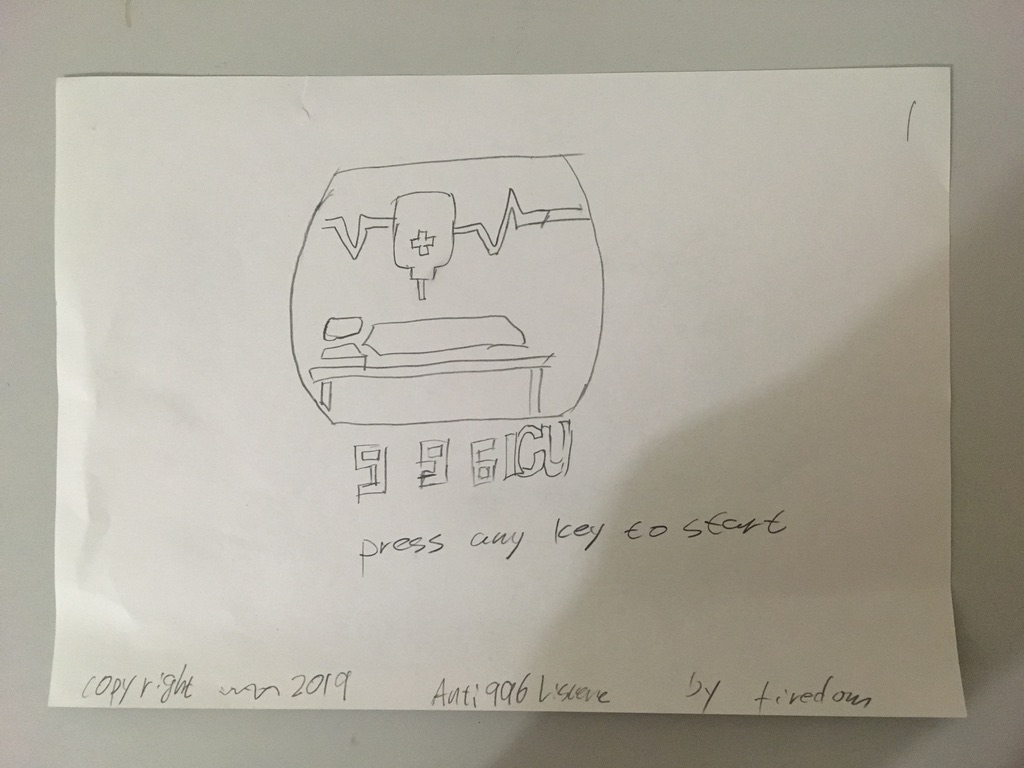 996ICU
press any key to start
copyright 2019 Anti996 by firedom